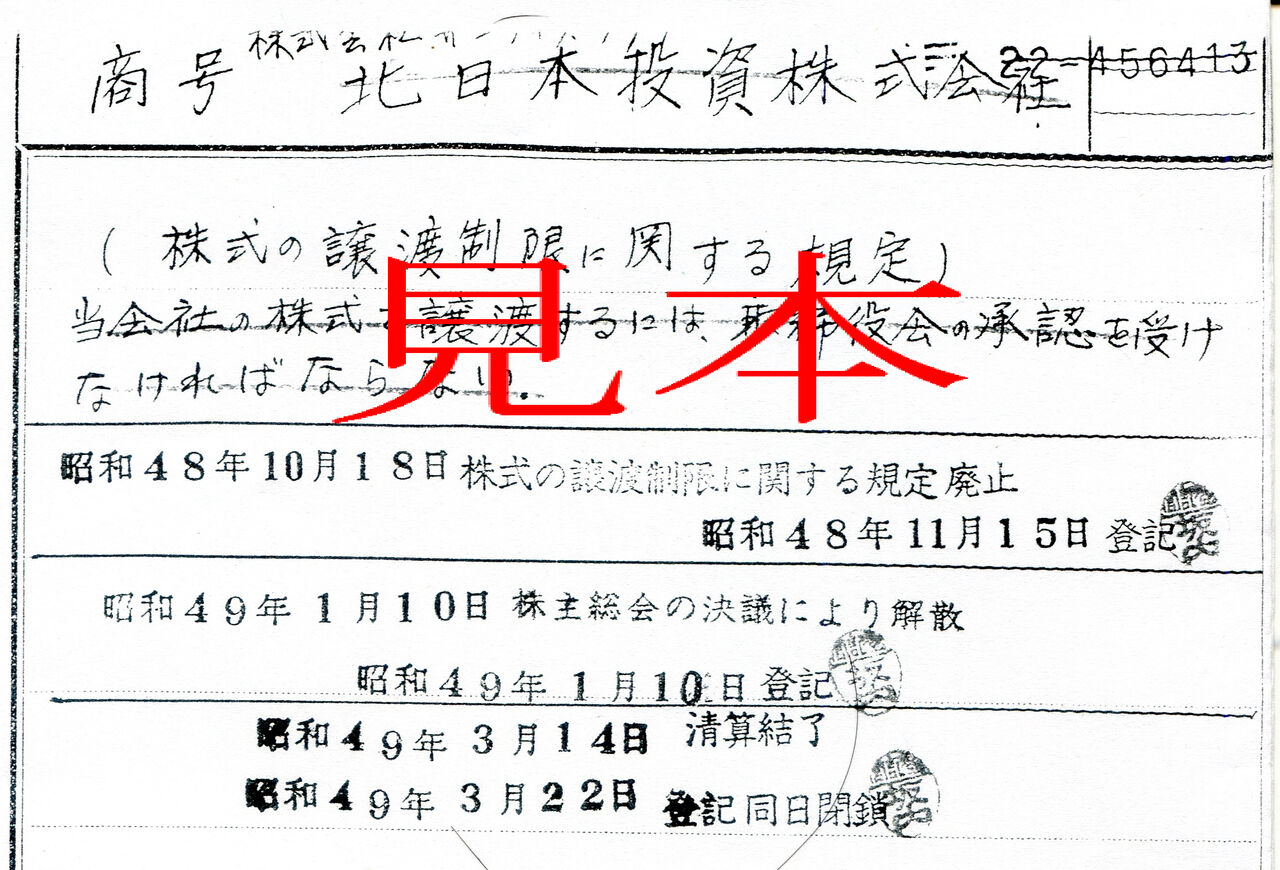 株式会社
商号 北日本投資株式会社
22-456413
(株式の譲渡制限に関する規定)
当会社の株式を譲渡するには、取締役会の承認を受け
なければならない.
見本
昭和48年10月18日株式の譲渡制限に関する規定廃止
昭和48年11月15日 登記
昭和49年1月10日 株主総会の決議により解散
昭和49年1月10日 登記
昭和49年3月14日 清算結了
昭和49年3月22日 登記同日閉鎖